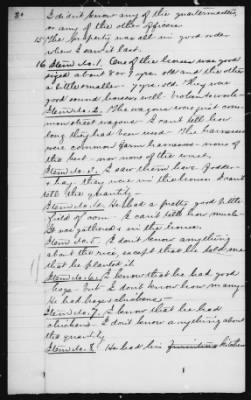 8.
I do not know any of the quartermasters
or any of the other officers
15 The property was all in good order
when I saw it last.
16 Item No. 1. One of the horses was good
sized about 8 or 9 year old and the other
a little smaller - 7 yrs. old. They was
good sound horses, well
Item No. 2. The wagons were just com-
mon street wagons I can't tell how
long they had been used. The harness
were common farm harness - none of
the best - nor none of the worst.
Item No. 3. I saw them have fodder
& hay they were in the house I can't
tell the quantity -
Item No. 4. He had a pretty good little
field of corn - I can't tell how much
It was gathered & in the house.
Item No. 5. I don't know anything
about the rice, except that he told me
that he planted it
Item No. 6. I know that he had good
hogs - But I don't know how many -
He had hogs & chickens -
Item No. 7. I know that he had
chickens - I don't know anything about
the quantity
Item No. 8 He had his kitchen